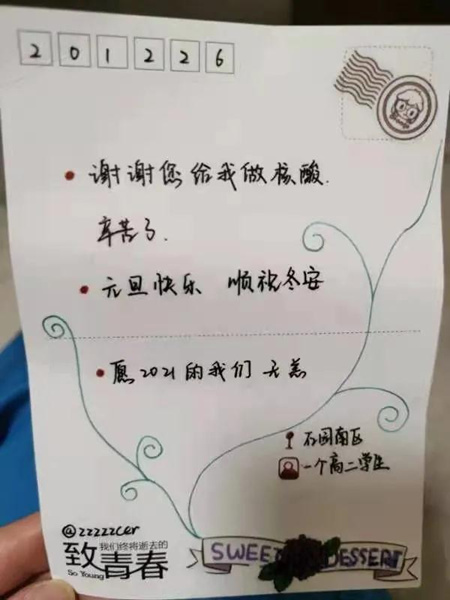 201226
谢谢您给我做核酸.
辛苦了.
元旦快乐 顺祝冬安
愿2021的我们 无恙
石园南区
一个高二学生
@zzzzzcer
我们终将逝去的
致青春
So Young
SWEET DESSERT